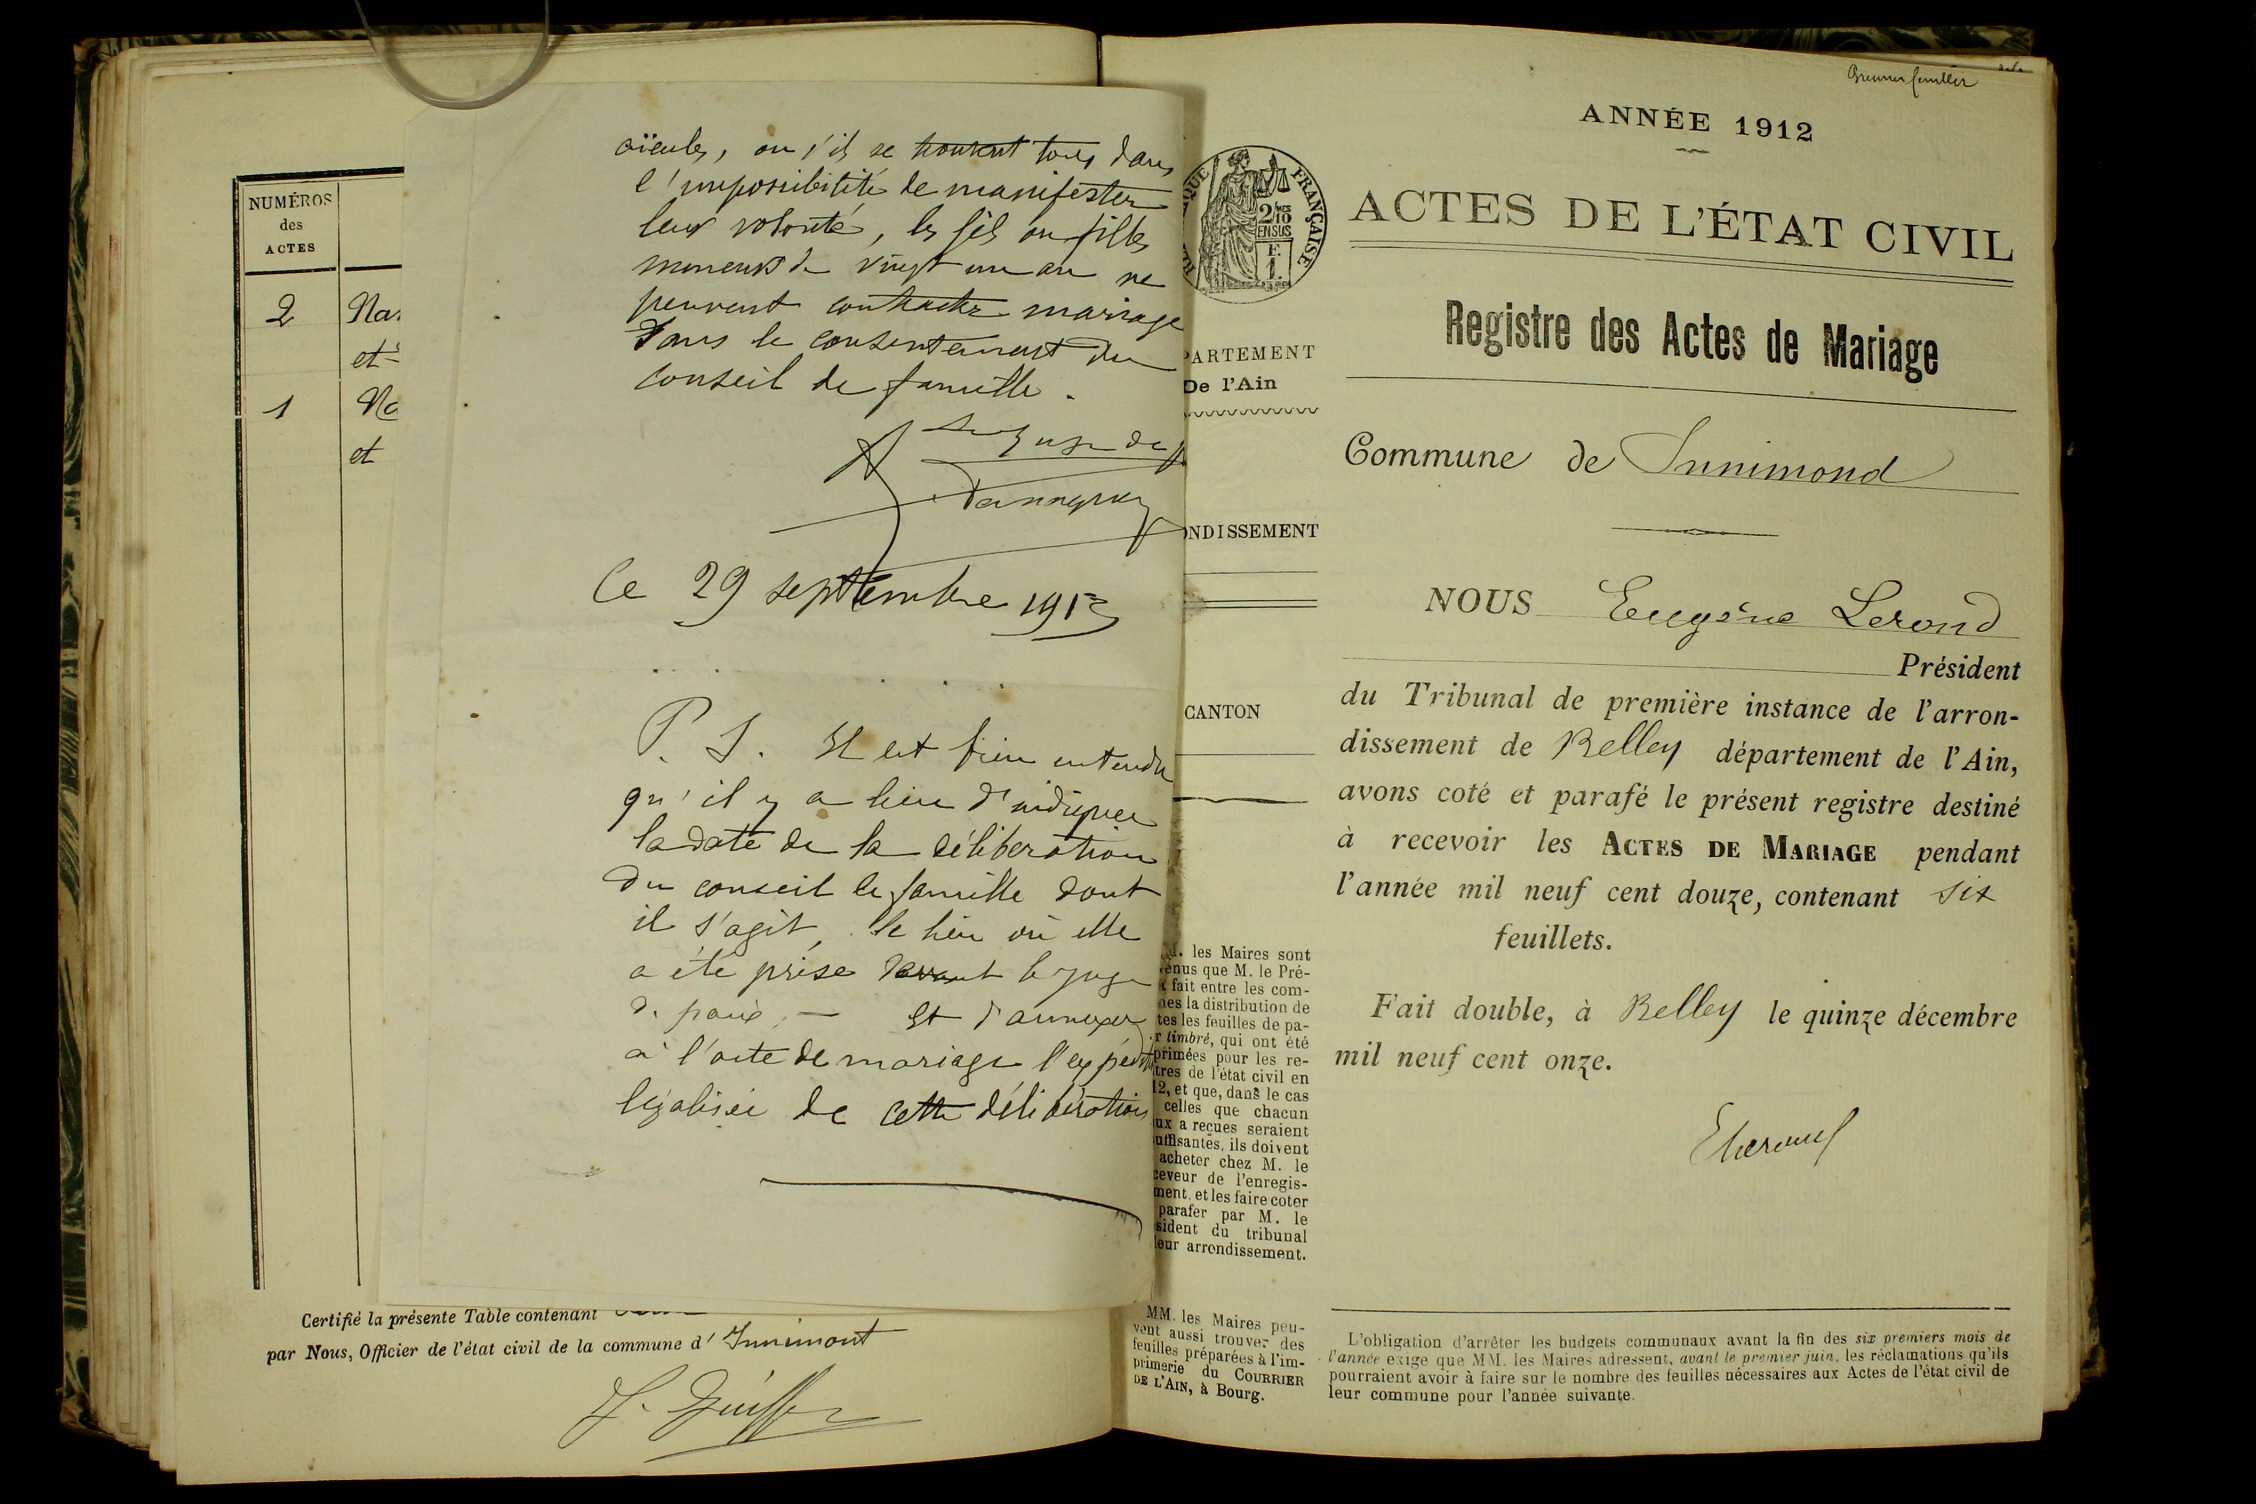 NUMÉROS
des
ACTES
2
Na
et
1
No
et
aïeuls, ou s'ils se trouvent tous dans
l'impossibilité de manifester
leur volonté, les fils ou filles
mineurs de vingt un an ne
peuvent contracter mariage
sans le consentement du
conseil de famille.
Le juge de
Ce 29 septembre 1912
P. S. Il est bien entendu
qu'il y a lieu d'indiquer
la date de la délibération
du conseil de famille dont
il s'agit, le lieu où elle
a été prise devant le juge
de paix. — Et d'annexer
à l'acte de mariage l'expédition
légalisée de cette délibération
Certifié la présente Table contenant
par Nous, Officier de l'état civil de la commune d' Innimont
Premier feuillet
ANNÉE 1912
QUE FRANÇAISE
2/10
EN SUS
F.
1.
ACTES DE L'ÉTAT CIVIL
Registre des Actes de Mariage
PARTEMENT
De l'Ain
ONDISSEMENT
CANTON
Commune de Innimond
NOUS Eugène Lerond
Président
du Tribunal de première instance de l'arron-
dissement de Belley département de l'Ain,
avons coté et parafé le présent registre destiné
à recevoir les ACTES DE MARIAGE pendant
l'année mil neuf cent douze, contenant six
feuillets.
Fait double, à Belley le quinze décembre
mil neuf cent onze.
M. les Maires sont
venus que M. le Pré-
fait entre les com-
nes la distribution de
tes les feuilles de pa-
r timbré, qui ont été
primées pour les re-
tres de l'état civil en
12, et que, dans le cas
celles que chacun
ux a reçues seraient
uffisantes, ils doivent
acheter chez M. le
ceveur de l'enregis-
ment, et les faire coter
parafer par M. le
sident du tribunal
leur arrondissement.
MM. les Maires peu-
vent aussi trouver des
feuilles préparées à l'im-
primerie du COURRIER
DE L'AIN, à Bourg.
L'obligation d'arrêter les budgets communaux avant la fin des six premiers mois de
l'année exige que MM. les Maires adressent, avant le premier juin, les réclamations qu'ils
pourraient avoir à faire sur le nombre des feuilles nécessaires aux Actes de l'état civil de
leur commune pour l'année suivante.